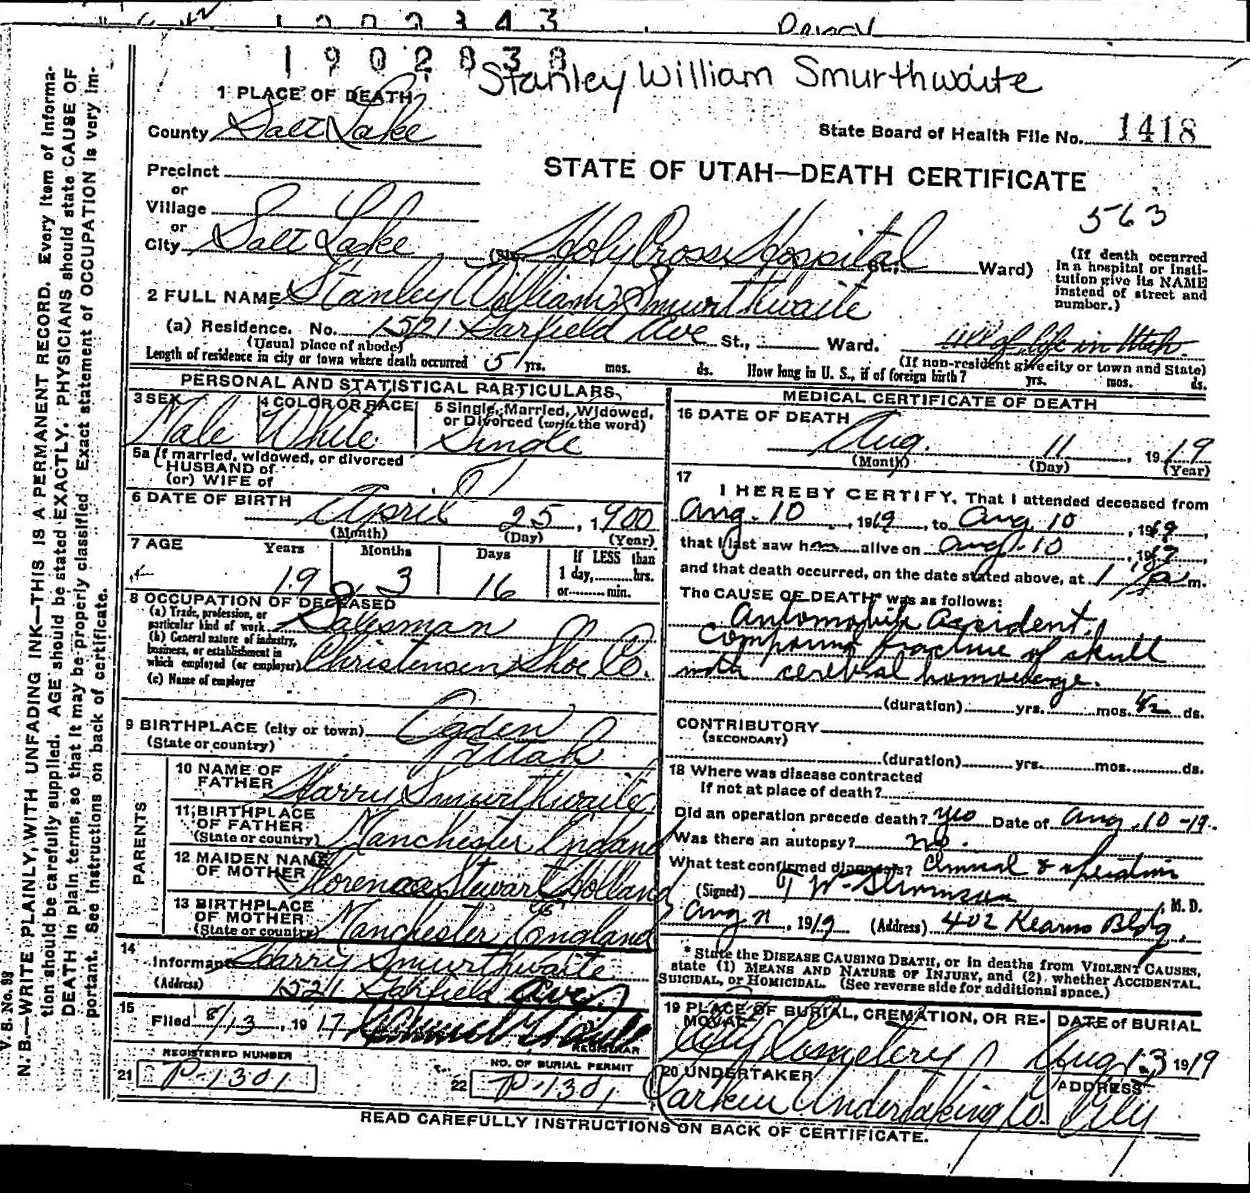 1902838
Stanley William Smurthwaite
1 PLACE OF DEATH
County Salt Lake
State Board of Health File No. 1418
Precinct
or
Village
or
City Salt Lake
STATE OF UTAH—DEATH CERTIFICATE
563
Holy Cross Hospital St., Ward)
(If death occurred
in a hospital or insti-
tution give its NAME
instead of street and
number.)
2 FULL NAME Stanley William Smurthwaite
(a) Residence. No. 1521 Garfield Ave St., Ward. All of life in Utah.
(Usual place of abode)
(If non-resident give city or town and State)
Length of residence in city or town where death occurred 5 yrs. mos. ds. How long in U. S., if of foreign birth? yrs. mos. ds.
PERSONAL AND STATISTICAL PARTICULARS
3 SEX Male
4 COLOR OR RACE White
5 Single, Married, Widowed,
or Divorced (write the word)
Single
5a If married, widowed, or divorced
HUSBAND of
(or) WIFE of
6 DATE OF BIRTH April 25, 1900
(Month) (Day) (Year)
7 AGE Years Months Days If LESS than
1 day, hrs.
or min.
19 3 16
8 OCCUPATION OF DECEASED
(a) Trade, profession, or
particular kind of work Salesman
(b) General nature of industry,
business, or establishment in
which employed (or employer) Christensen Shoe Co.
(c) Name of employer
9 BIRTHPLACE (city or town) Ogden
(State or country) Utah
PARENTS
10 NAME OF
FATHER Harry Smurthwaite
11 BIRTHPLACE
OF FATHER
(State or country) Manchester England
12 MAIDEN NAME
OF MOTHER Florence Stewart Holland
13 BIRTHPLACE
OF MOTHER
(State or country) Manchester England
14
Informant Harry Smurthwaite
(Address) 1521 Garfield Ave
15
Filed 8/13, 1917
REGISTRAR
REGISTERED NUMBER
21 P-1301
NO. OF BURIAL PERMIT
22 P-1301
MEDICAL CERTIFICATE OF DEATH
16 DATE OF DEATH
Aug. 11 1919
(Month) (Day) (Year)
17
I HEREBY CERTIFY, That I attended deceased from
Aug. 10, 1919, to Aug 10, 1919,
that I last saw him alive on Aug. 10, 1919
and that death occurred, on the date stated above, at 1 m.
The CAUSE OF DEATH* was as follows:
Automobile Accident.
compound fracture of skull
with cerebral homorrage.
(duration) yrs. mos. 1/2 ds.
CONTRIBUTORY
(SECONDARY)
(duration) yrs. mos. ds.
18 Where was disease contracted
if not at place of death?
Did an operation precede death? yes Date of Aug. 10-19.
Was there an autopsy? no.
What test confirmed diagnosis? Clinical & operation
(Signed) , M. D.
Aug 11, 1919 (Address) 402 Kearns Bldg.
*State the DISEASE CAUSING DEATH, or in deaths from VIOLENT CAUSES,
state (1) MEANS AND NATURE OF INJURY, and (2) whether ACCIDENTAL,
SUICIDAL, or HOMICIDAL. (See reverse side for additional space.)
19 PLACE OF BURIAL, CREMATION, OR RE-
MOVAL City Cemetery
DATE of BURIAL
Aug 13 1919
20 UNDERTAKER
Larkin Undertaking Co.
ADDRESS
City
READ CAREFULLY INSTRUCTIONS ON BACK OF CERTIFICATE.
V. S. No. 98
N. B.—WRITE PLAINLY, WITH UNFADING INK—THIS IS A PERMANENT RECORD. Every item of informa-
tion should be carefully supplied. AGE should be stated EXACTLY. PHYSICIANS should state CAUSE OF
DEATH in plain terms, so that it may be properly classified. Exact statement of OCCUPATION is very im-
portant. See instructions on back of certificate.